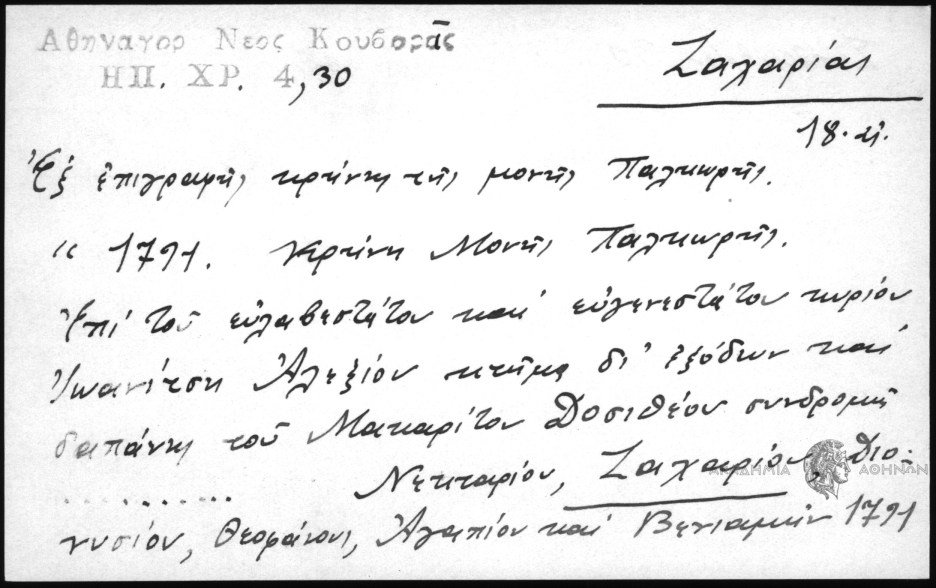 Αθηναγορ Νεος Κουβαρᾶς
ΗΠ. ΧΡ. 4,30
Ζαχαρίας
18. αἰ.
Ἐξ ἐπιγραφῆς κρήνης τῆς μονῆς Παλιωρῆς.
" 1791. Κρήνη Μονῆς Παλιωρῆς.
Ἐπί τοῦ εὐλαβεστάτου καί εὐγενεστάτου κυρίου
Ἰωανίτση Ἀλεξίου κτῆμα δι' ἐξόδων καί
δαπάνης τοῦ Μακαρίτου Δοσιθέου συνδρομῇ
.......... Νεκταρίου, Ζαχαρίου, Διο-
ΑΚΑΔΗΜΙΑ ΑΘΗΝΩΝ
νυσίου, Θεοφάνους, Ἀγαπίου καί Βενιαμίν 1791